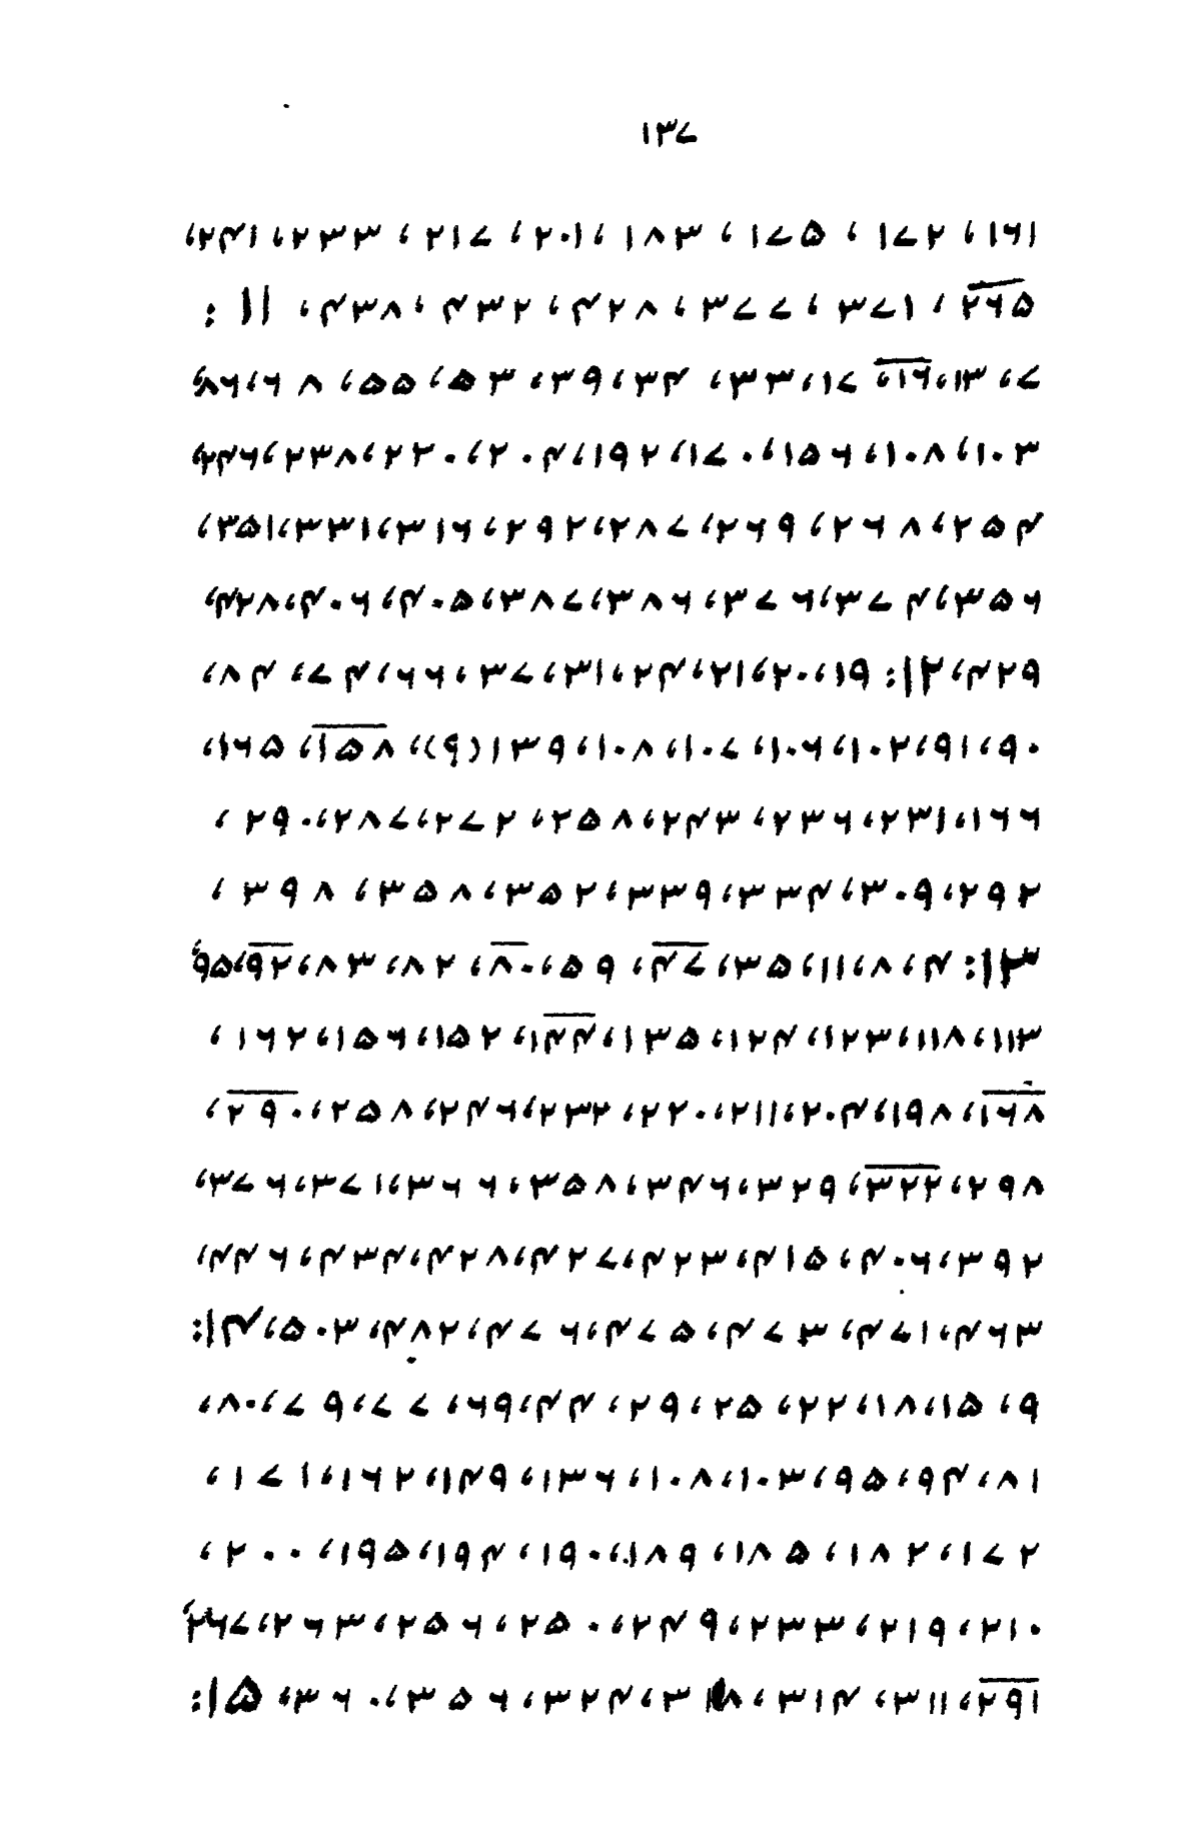 ۱۳۷
۱۶۱، ۱۷۲، ۱۷۵، ۱۸۳، ۲۰۱، ۲۱۷، ۲۳۳، ۲۴۱،
۲۶۵، ۳۷۱، ۳۷۷، ۴۲۸، ۴۳۲، ۴۳۸، ۱۱:
۷، ۱۳، ۱۶، ۱۷، ۳۳، ۳۴، ۳۹، ۵۳، ۵۵، ۶۸، ۸۶،
۱۰۳، ۱۰۸، ۱۵۶، ۱۷۰، ۱۹۲، ۲۰۴، ۲۲۰، ۲۳۸، ۲۴۶،
۲۵۴، ۲۶۸، ۲۶۹، ۲۸۷، ۲۹۲، ۳۱۶، ۳۳۱، ۳۵۱،
۳۵۶، ۳۷۴، ۳۷۶، ۳۸۶، ۳۸۷، ۴۰۵، ۴۰۶، ۴۲۸،
۴۲۹، ۱۲: ۱۹، ۲۰، ۲۱، ۲۴، ۳۱، ۳۷، ۶۶، ۴۷، ۸۴،
۹۰، ۹۱، ۱۰۲، ۱۰۶، ۱۰۷، ۱۰۸، ۱۳۹(۹)، ۱۵۸، ۱۶۵،
۱۶۶، ۲۳۱، ۲۳۶، ۲۴۳، ۲۵۸، ۲۷۲، ۲۸۷، ۲۹۰،
۲۹۲، ۳۰۹، ۳۳۴، ۳۳۹، ۳۵۲، ۳۵۸، ۳۹۸،
۱۳: ۴، ۸، ۱۱، ۳۵، ۴۷، ۵۹، ۸۰، ۸۲، ۸۳، ۹۲، ۹۵،
۱۱۳، ۱۱۸، ۱۲۳، ۱۲۴، ۱۳۵، ۱۴۴، ۱۵۲، ۱۵۶، ۱۶۲،
۱۶۸، ۱۹۸، ۲۰۴، ۲۱۱، ۲۲۰، ۲۳۲، ۲۴۶، ۲۵۸، ۲۹۰،
۲۹۸، ۳۲۲، ۳۲۹، ۳۴۶، ۳۵۸، ۳۶۶، ۳۷۱، ۳۷۶،
۳۹۲، ۴۰۶، ۴۱۵، ۴۲۳، ۴۲۷، ۴۲۸، ۴۳۴، ۴۴۶،
۴۶۳، ۴۷۱، ۴۷۳، ۴۷۵، ۴۷۶، ۴۸۲، ۵۰۳، ۱۴:
۹، ۱۵، ۱۸، ۲۲، ۲۵، ۲۹، ۴۴، ۶۹، ۷۷، ۷۹، ۸۰،
۸۱، ۹۴، ۹۵، ۱۰۳، ۱۰۸، ۱۳۶، ۱۴۹، ۱۶۲، ۱۷۱،
۱۷۲، ۱۸۲، ۱۸۵، ۱۸۹، ۱۹۰، ۱۹۴، ۱۹۵، ۲۰۰،
۲۱۰، ۲۱۹، ۲۳۳، ۲۴۹، ۲۵۰، ۲۵۶، ۲۶۳، ۲۶۷،
۲۹۱، ۳۱۱، ۳۱۴، ۳۱۸، ۳۲۴، ۳۵۶، ۳۶۰، ۱۵: